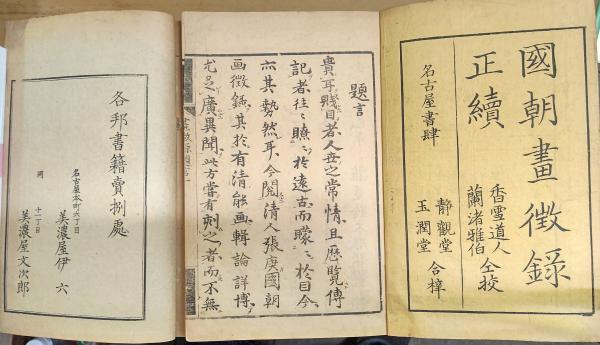 國朝畫徵錄
正續
香雪道人
蘭渚雅伯
仝挍
名古屋書肆
静觀堂
玉潤堂
合梓
題言
貴耳賤目者人世之常情且歷覽傳
記者往〻瞭〻於遠古而矇〻於目今
亦其勢然耳今閱清人張庚國朝
画徴錄其於有清能画輯論詳博
尤足廣異聞此方嘗有刻之者而不無
各邦書籍賣捌處
名古屋本町六丁目
美濃屋伊六
同 十一丁目
美濃屋文次郎